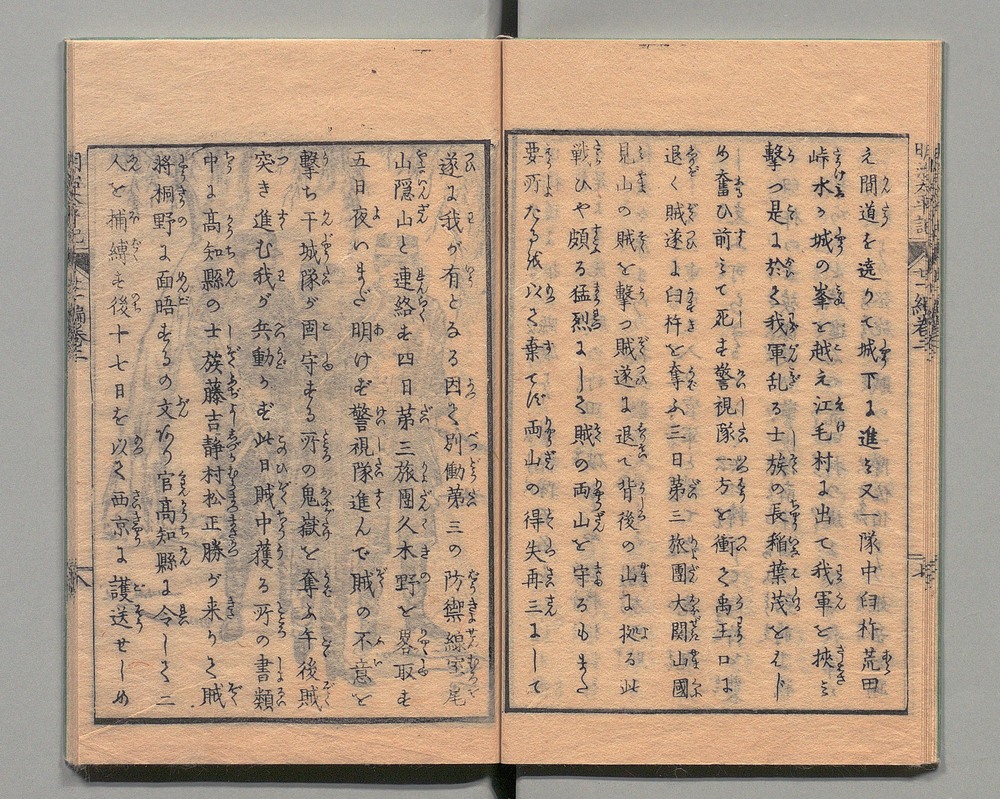 え間道を遶りて城下に進ミ又一隊中臼杵荒田
峠水ケ城の峯を越え江毛村に出て我軍を挾ミ
撃つ是に於て我軍乱る士族の長稲葉茂を
め奮ひ前ミて死す警視隊一方を衝て禹王口に
退く賊遂に臼杵を奪ふ三日第三旅團大関山國
見山の賊を撃つ賊遂に退て背後の山に拠る此
戦ひや頗る猛烈にして賊の両山を守るもまた
要所たるを以て棄てず両山の得失再三にして
遂に我が有となる因て別働第三の防禦線室尾
山隠山と連絡す四日第三旅團久木野を畧取す
五日夜いまだ明けず警視隊進んで賊の不意を
撃ち干城隊が固守する所の鬼嶽を奪ふ午後賊
突き進む我が兵動かず此日賊中獲る所の書類
中に髙知縣の士族藤吉静村松正勝が来りて賊
将桐野に面晤するの文あり官髙知縣に令して二
人を捕縛す後十七日を以て西京に護送せしめ
明治太平記
廿一編巻之二
八